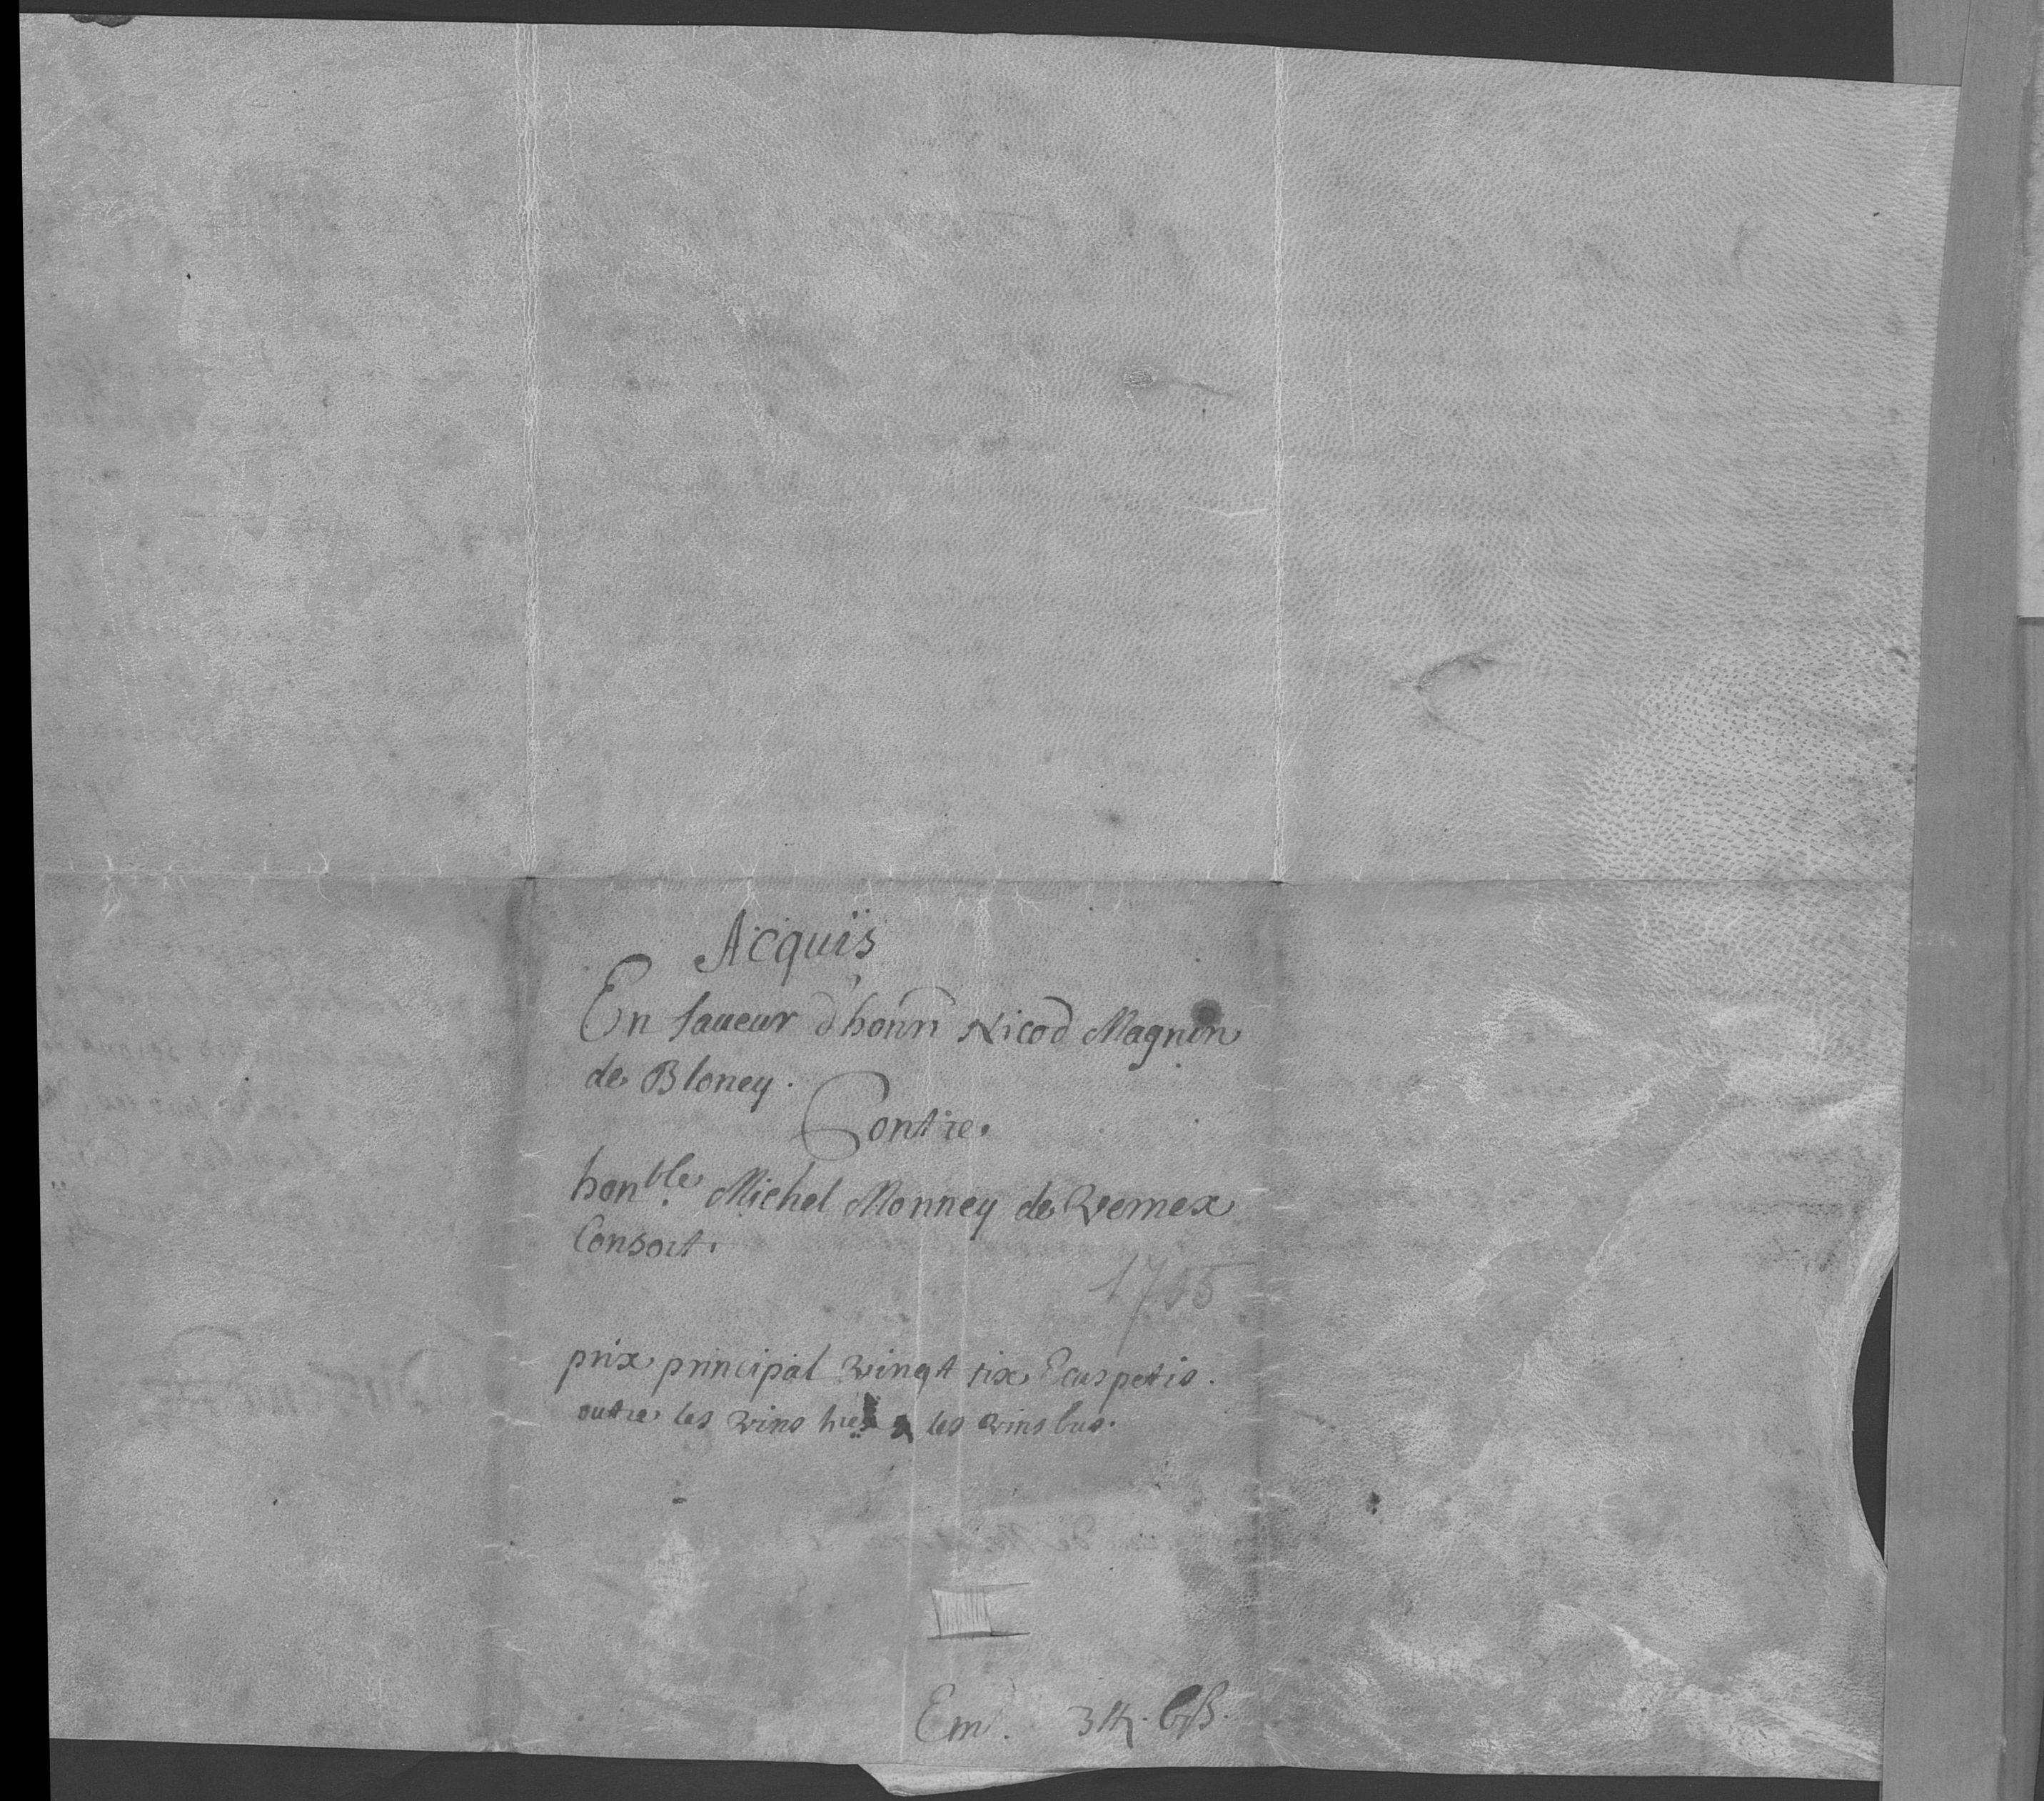 Acquis
En faueur d'honn Nicod Magnin
de Bloney.
Contre
honble Michel Monney de Vernex
Consort.
1715
prix principal vingt six Ecus petis.
outre les vins les vins bus.
Em.